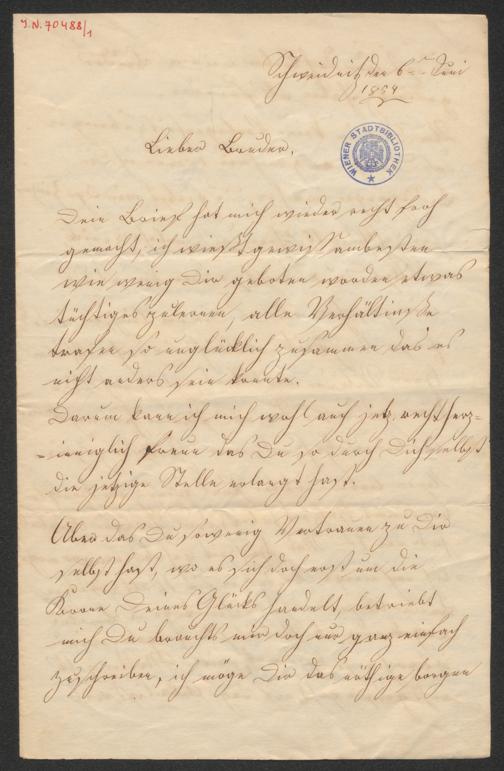 J.N. 70488/1
Schweidnitz den 6ten Juni
1894
WIENER STADTBIBLIOTHEK
Lieber Bruder,
Dein Brief hat mich wieder recht froh
gemacht, ich weißt gewiß am besten
wie wenig Dir geboten worden etwas
tüchtiges zu lernen, alle Verhältniße
trafen so unglücklich zusammen das es
nicht anders sein konnte.
Darum kann ich mich wohl auch jetz, recht herz-
-inniglich freun das Du so durch Dich selbst
die jetzige Stelle erlangt hast.
Aber das Du sowenig Vertrauen zu Dir
selbst hast, wo es sich doch erst um die
Krone Deines Glücks handelt, betrübt
mich Du brauchts mir doch nur ganz einfach
zu schreiben, ich möge Dir das nöthige borgen